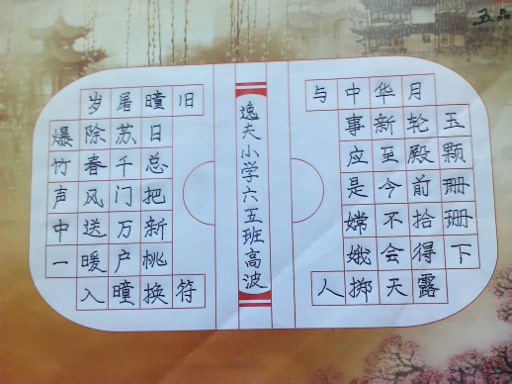 玉颗珊珊下
月轮殿前拾得露
华新至今不会天
中事应是嫦娥掷
与人
逸夫小学六五班高波
爆竹声中一
岁除春风送暖入
屠苏千门万户瞳
瞳日总把新桃换
旧符